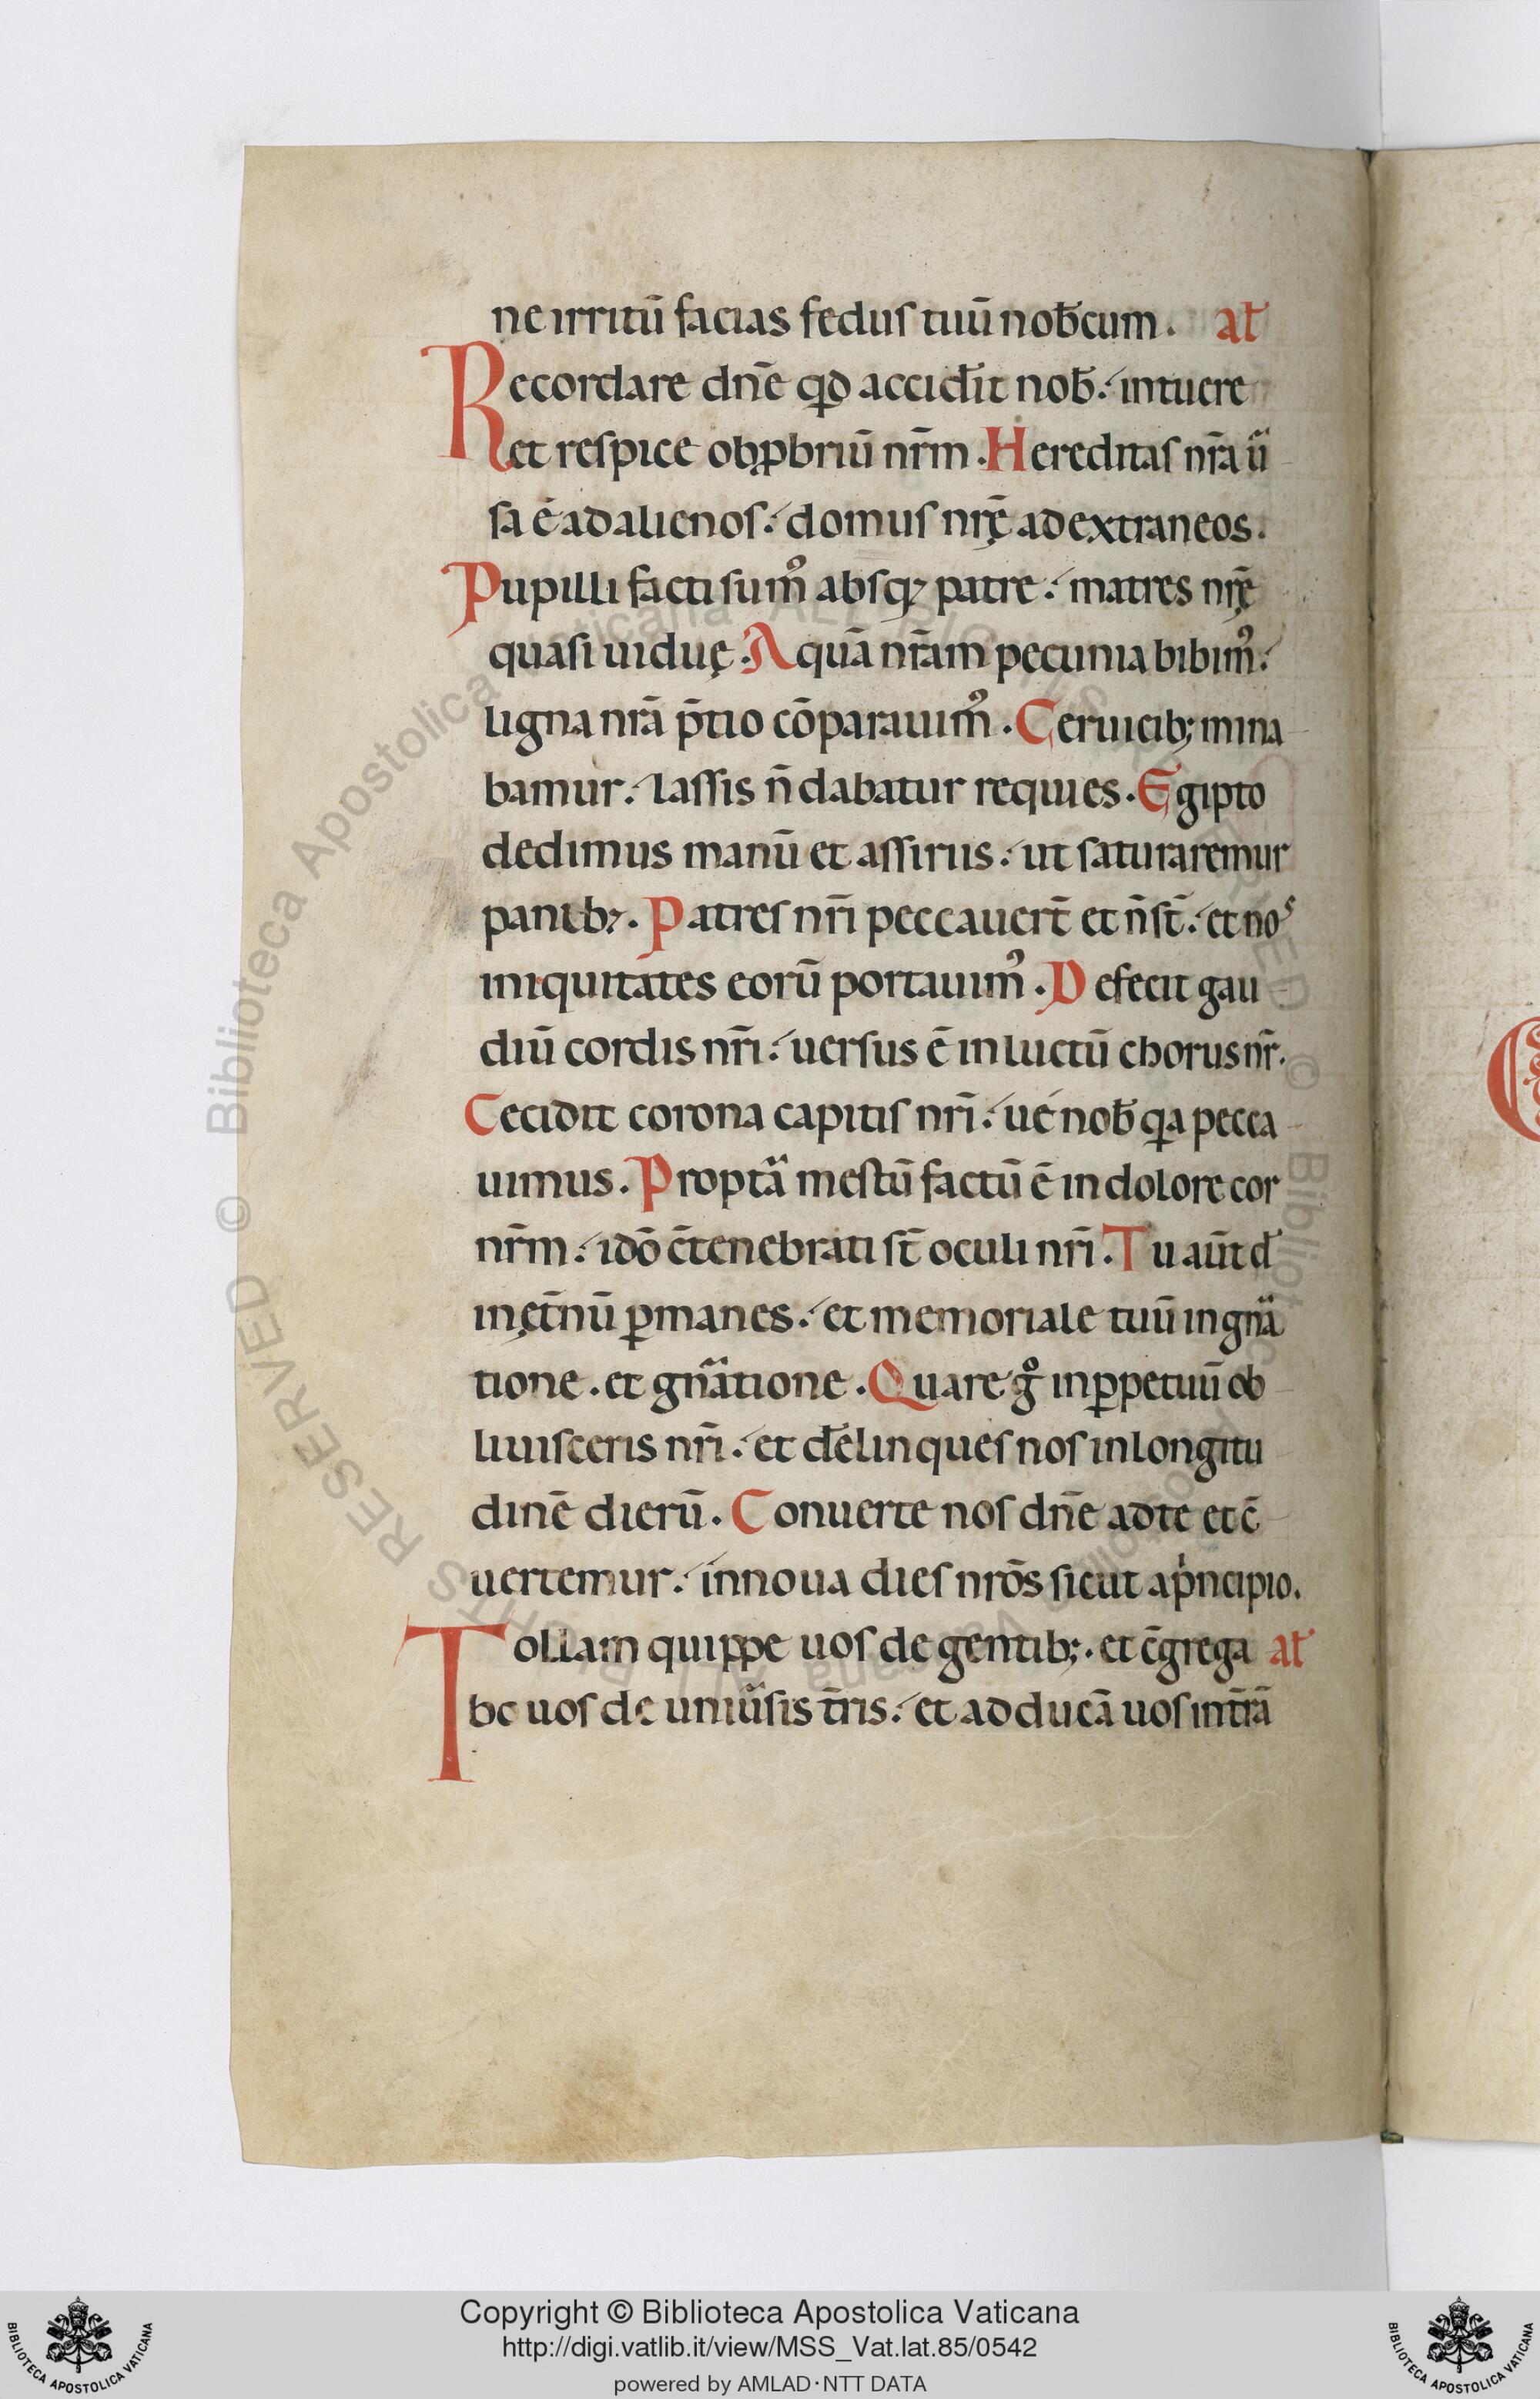 ne irritū facias fedus tuū nob̄cum. at̄
Recordare dn̄e qd accid̄it nob̄. intuere
et respice obp̱briū nr̄m. Hereditas nr̄a uͣ
sa ē ad alienos. domus nrę̄ ad extraneos.
Pupilli facti sumꝰ absqꝫ patre. matres nrę̄
quasi uiduę. Aquā nr̄am pecunia bibimꝰ.
ligna nr̄a p̄tio cōparauimꝰ. Ceruicib; mina
bamur. lassis n̄ dabatur requies. Egipto
dedimus manū et assiriis. ut saturaremur
panibꝫ. Patres nr̄i peccauer̄t et n̄ st̄. et nos
iniquitates eorū portauimꝰ. Defecit gau
diū cordis nr̄i. uersus ē in luctū chorus nr̄.
Cecidit corona capitis nr̄i. uę nob̄ qa pecca
uimus. Proptͣa mestū factū ē in dolore cor
nr̄m. idō c̄tenebrati st̄ oculi nr̄i. Tu aūt d̄
in ęt̄nū ꝑmanes. et memoriale tuū in gnͣa
tione. et gnͣatione. Quare gͦ in ꝑpetuū ob
liuisceris nr̄i. et d̄elinques nos in longitu
dinē dierū. Conuerte nos dn̄e ad te et c̄
uertemur. innoua dies nr̄os sicut a pͥncipio.
Tollam quippe uos de gentib;. et c̄grega at̄
bo uos de uniuͣsis t̄ris. et adducā uos in t̄rā
© Biblioteca Apostolica Vaticana ALL RIGHTS RESERVED © Biblioteca Apostolica Vaticana ALL RIGHTS RESERVED
Copyright © Biblioteca Apostolica Vaticana
http://digi.vatlib.it/view/MSS_Vat.lat.85/0542
powered by AMLAD·NTT DATA
BIBLIOTECA APOSTOLICA VATICANA
BIBLIOTECA APOSTOLICA VATICANA